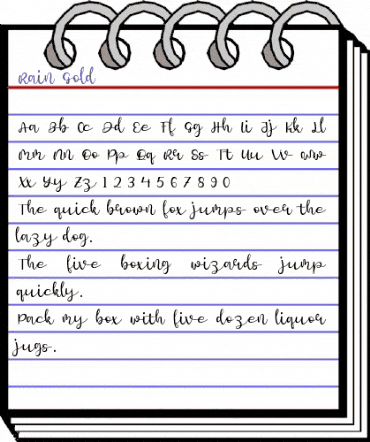 Rain Gold
Aa Bb Cc Dd Ee Ff Gg Hh Ii Jj Kk Ll
Mm Nn Oo Pp Qq Rr Ss Tt Uu Vv Ww
Xx Yy Zz 1 2 3 4 5 6 7 8 9 0
The quick brown fox jumps over the
lazy dog.
The five boxing wizards jump
quickly.
Pack my box with five dozen liquor
jugs.